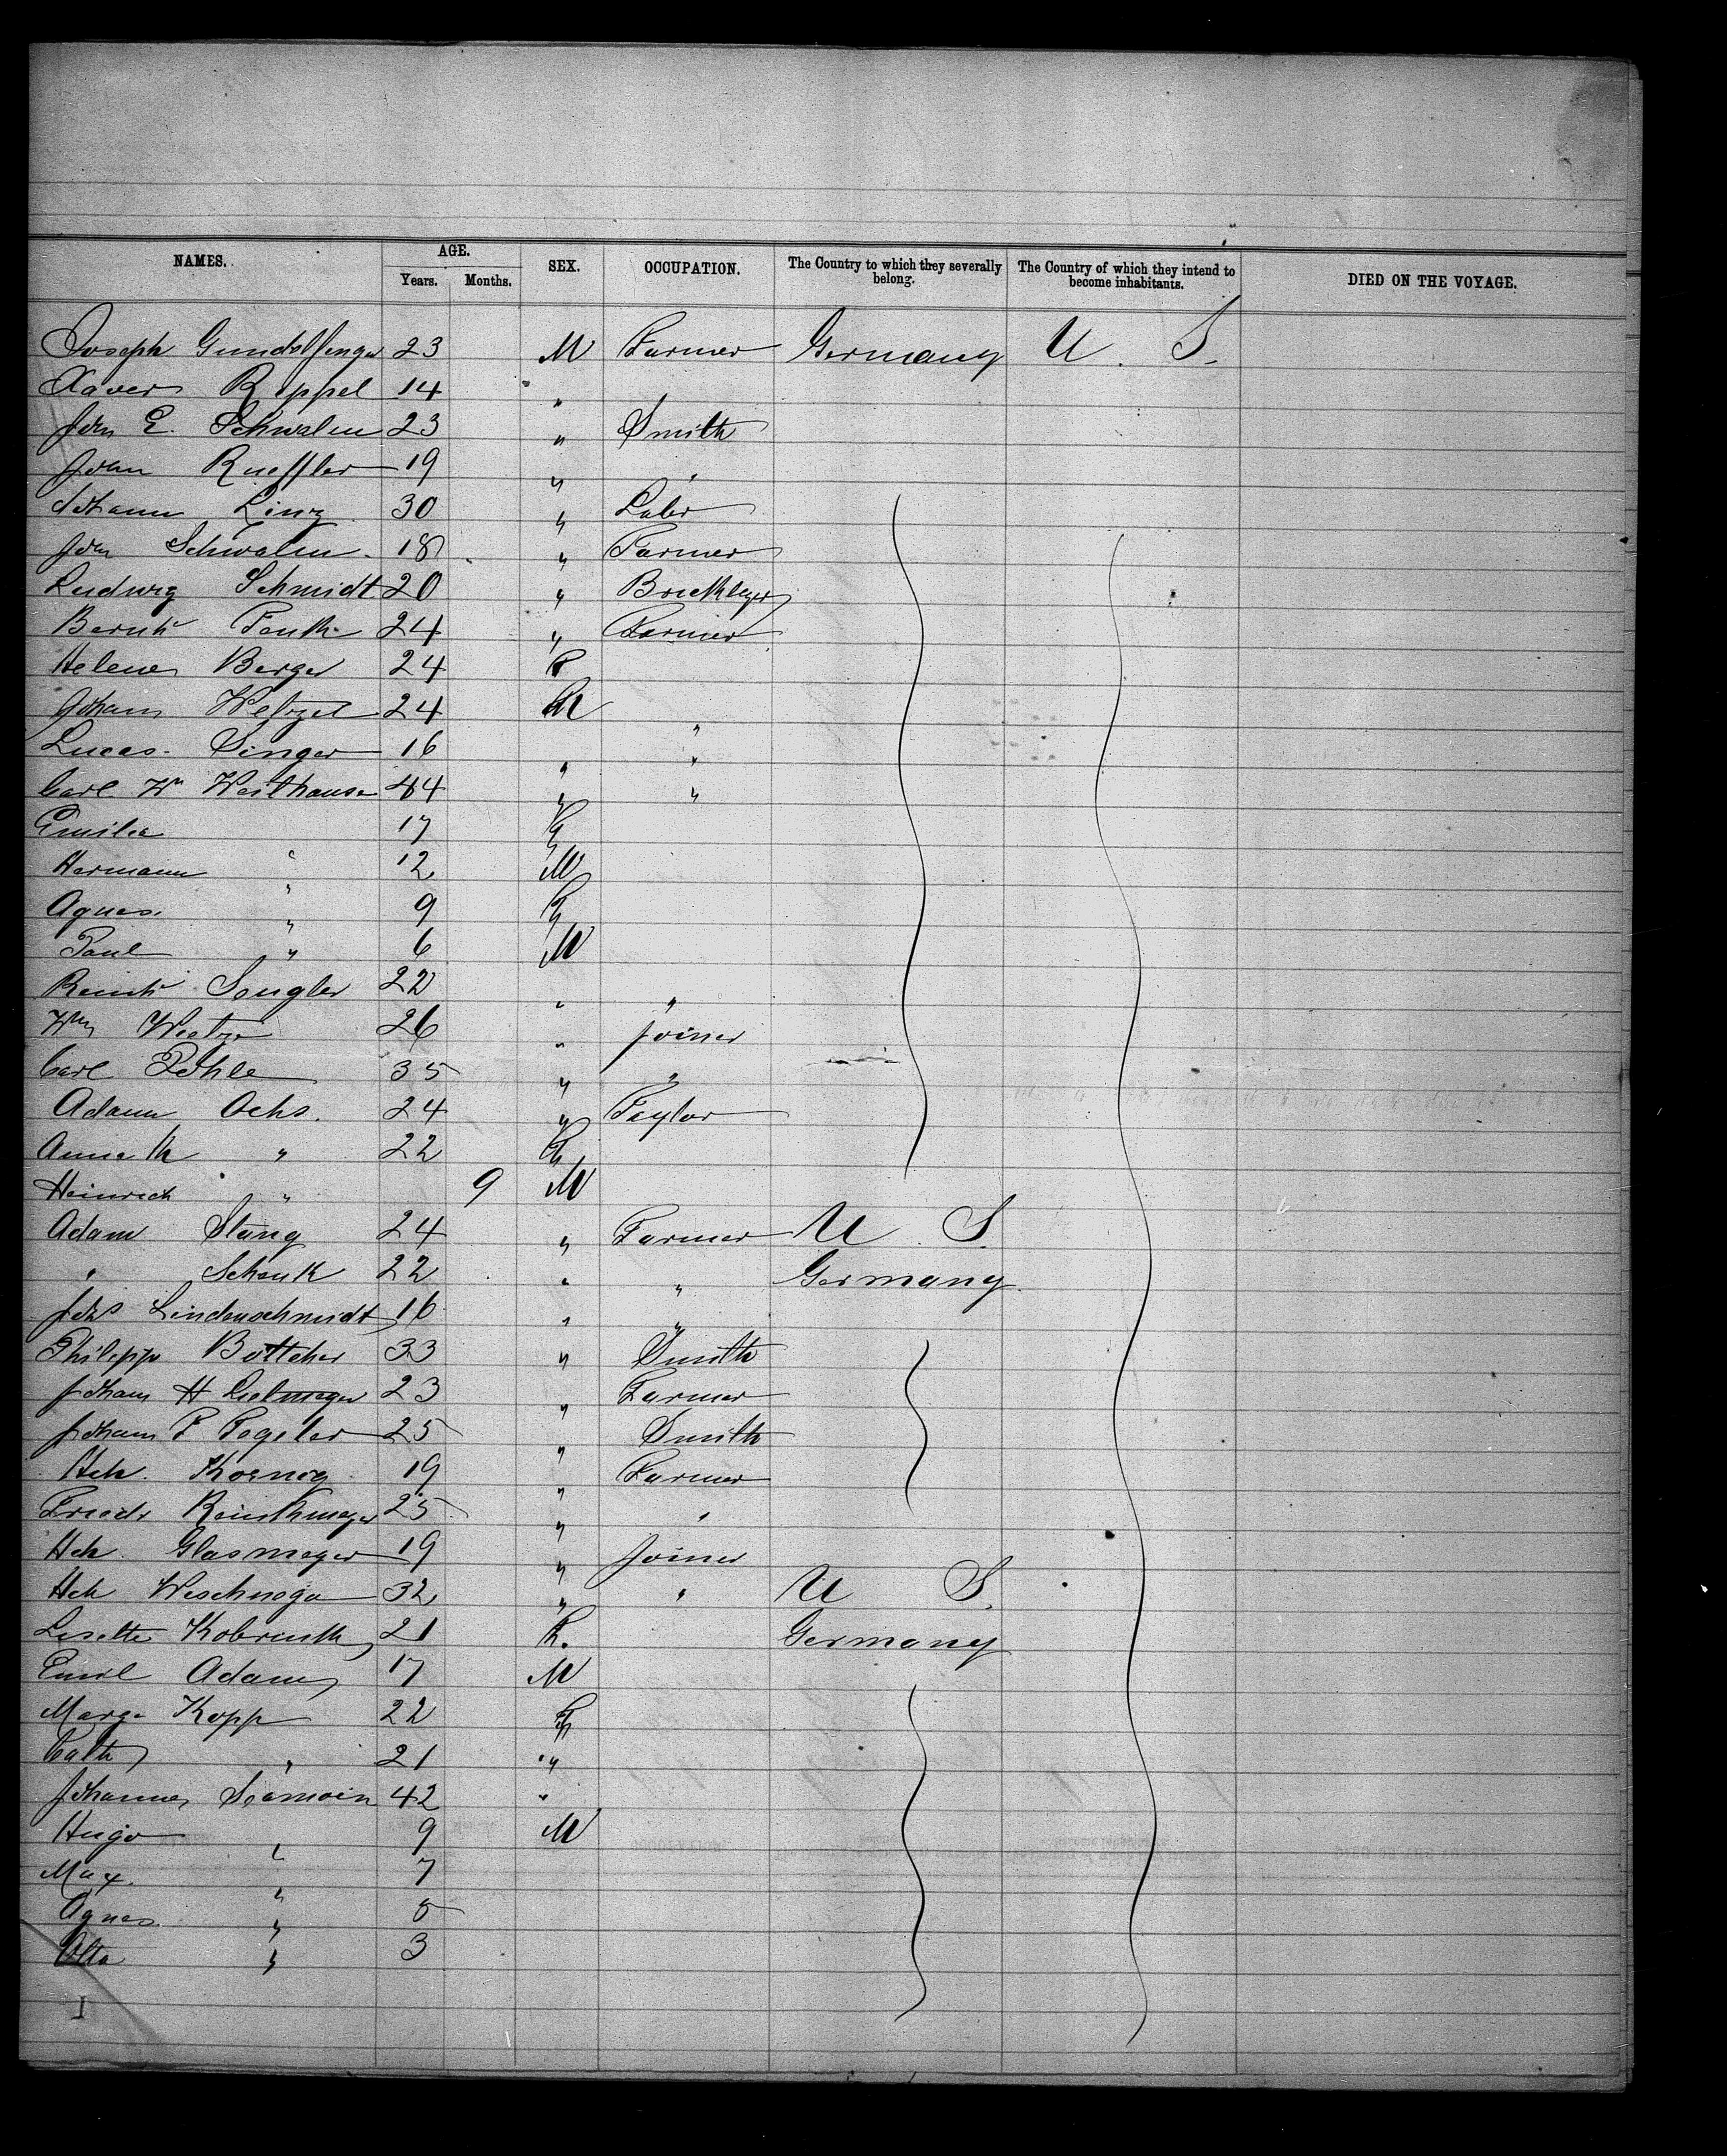 NAMES. AGE. SEX. OCCUPATION. The Country to which they severally belong. The Country of which they intend to become inhabitants. DIED ON THE VOYAGE.
Years. Months.
Joseph 23 M Farmer Germany U. S.
Xaver Rippel 14 "
John E. Schwalm 23 " Smith
John Rueffler 19 " "
Johann Linz 30 " Labor
John Schwalm 18 " Farmer
Ludwig Schmidt 20 "
Bernh Fauth 24 " Farmer
Helene Berger 24 F
Johann 24 M "
Lucas Singer 16 " "
Carl Wm Westhause 44 " "
Emilie " 17 F
Hermann " 12 M
Agnes " 9 F
Paul " 6 M
Reinh Sengler 22 " "
Wm 26 " Joiner
Carl Pohle 35 " "
Adam Ochs. 24 " Taylor
Anna M " 22 F
Heinrich " 9 M
Adam Stang 24 " Farmer U. S.
" Schenk 22 " " Germany
Johs Lindenschmidt 16 " "
Philipp Bottcher 33 " Smith
Johann H 23 " Farmer
Johann F Tegeler 25 " Smith
Hch. Koenig 19 " Farmer
Friedr 25 " "
Hch. Glasmeyer 19 " Joiner
Hch 32 " " U S.
Lisette 21 F. Germany
Emil Adam 17 M
Marga Kopp 22 F
Cath " 21 "
Johanne 42 "
Hugo " 9 M
Max " 7
Agnes " 5
Otto " 3